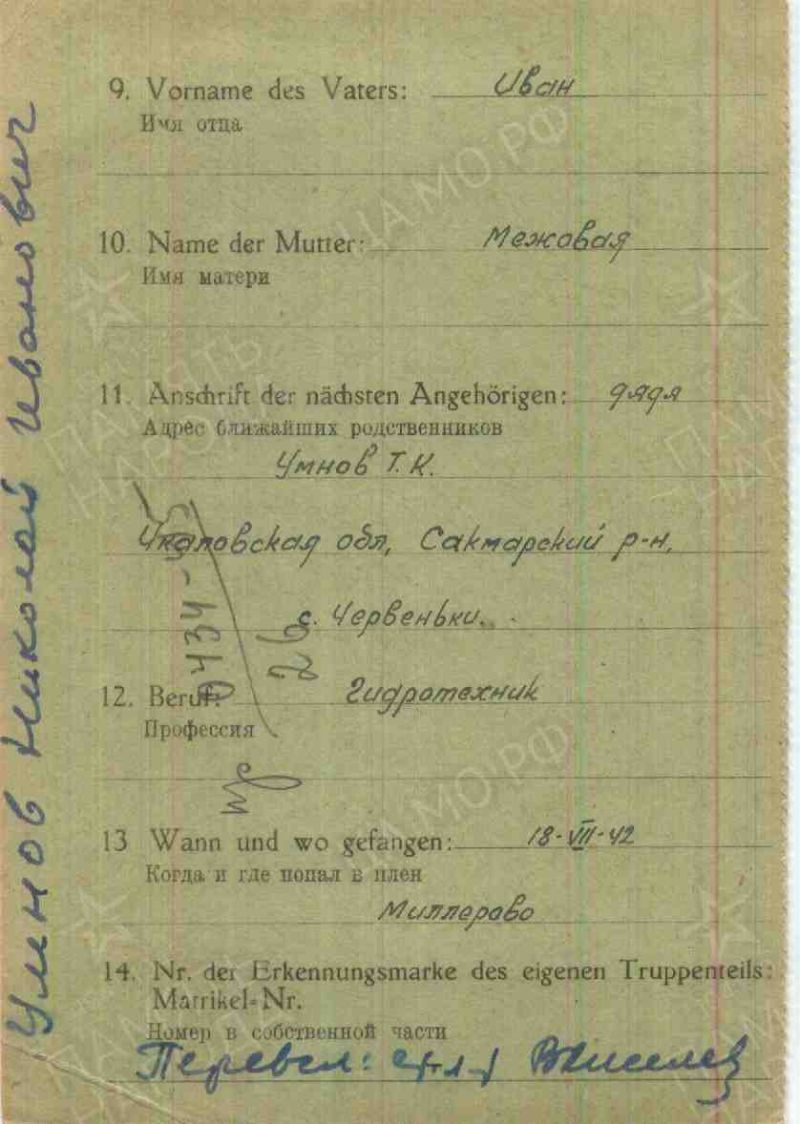 9. Vorname des Vaters: Иван
Имя отца
10. Name der Mutter: Межовая
Имя матери
11. Anschrift der nächsten Angehörigen: дядя
Адрес ближайших родственников
Умнов Т.К.
Чкаловская обл, Сакмарский р-н,
с. Червеньки.
12. Beruf: Гидротехник
Профессия
13 Wann und wo gefangen: 18-VII-42
Когда и где попал в плен
Миллерово
14. Nr. der Erkennungsmarke des eigenen Truppenteils:
Matrikel-Nr.
Номер в собственной части
Перевел:
Умнов Николай Иванович
26
ПАМЯТЬ НАРОДА
ЦАМО.РФ